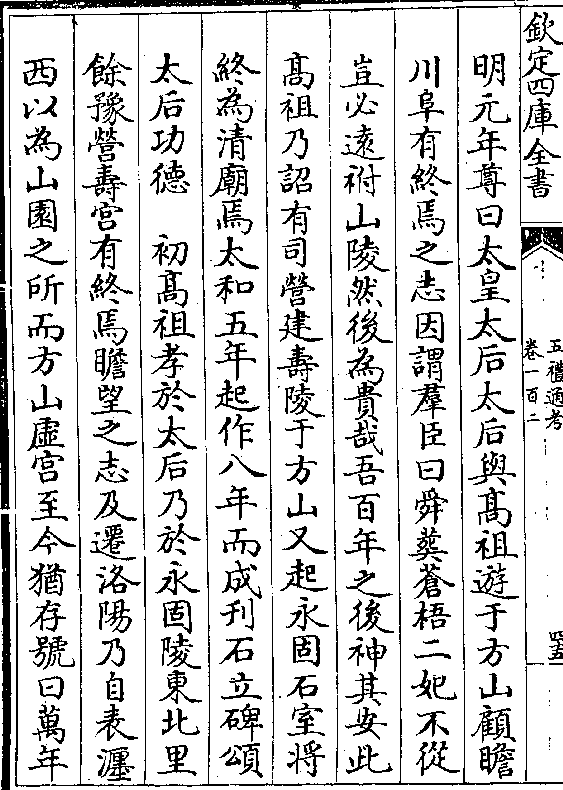 欽定四庫全書
五禮通考
卷一百二
四五
明元年尊曰太皇太后太后與髙祖遊于方山顧瞻
川阜有終焉之志因謂羣臣曰舜葬蒼梧二妃不從
豈必逺祔山陵然後為貴哉吾百年之後神其安此
髙祖乃詔有司營建壽陵于方山又起永固石室將
終為清廟焉太和五年起作八年而成刊石立碑頌
太后功德　初髙祖孝於太后乃於永固陵東北里
餘豫營壽宫有終焉瞻望之志及遷洛陽乃自表瀍
西以為山園之所而方山虛宫至今猶存號曰萬年